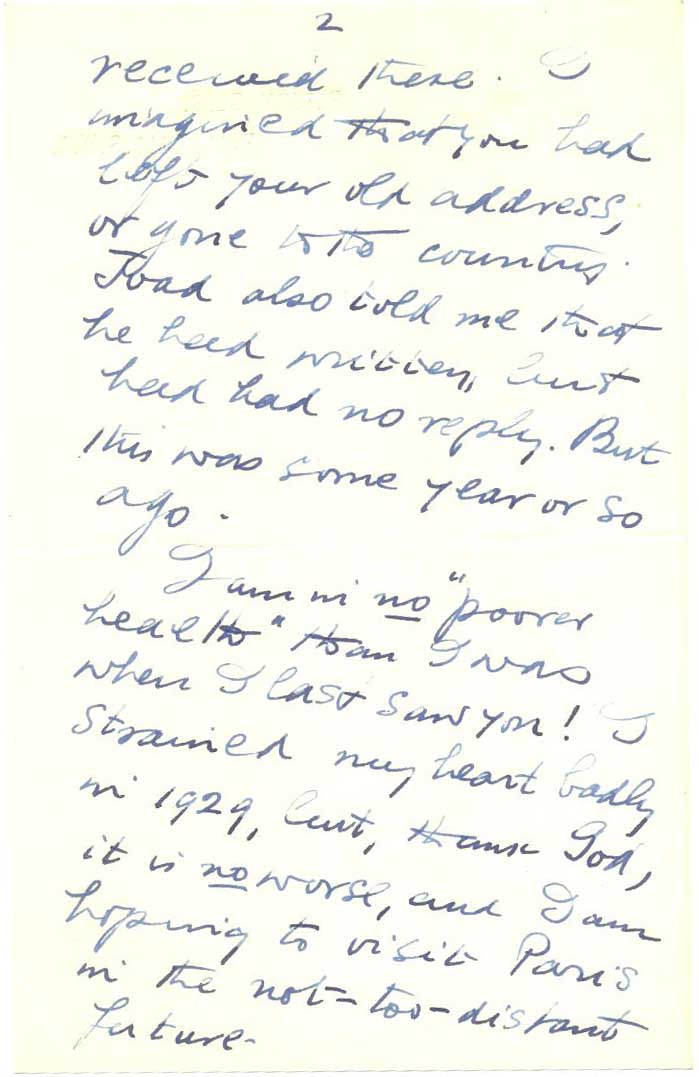 2
received there. I
imagined that you had
left your old address,
or gone to the country.
Joad also told me that
he had written, but
had had no reply. But
this was some year or so
ago.
I am in no "poorer
health" than I was
when I last saw you! I
strained my heart badly
in 1929, but, thank God,
it is no worse, and I am
hoping to visit Paris
in the not-too-distant
future.